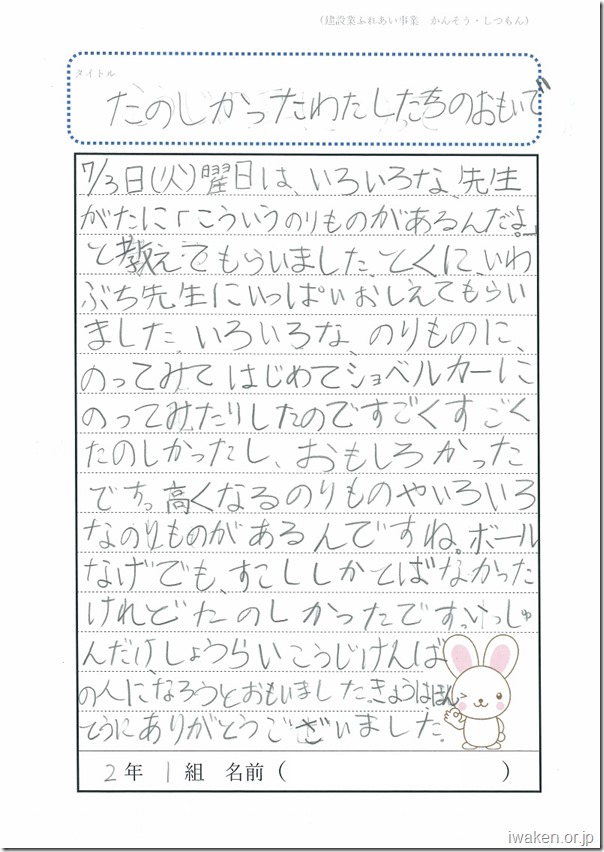 （建設業ふれあい事業　かんそう・しつもん）
タイトル
たのしかったわたしたちのおもいで
7/3日(火)曜日は、いろいろな、先生
がたに「こういうのりものがあるんだよ。」
と教えてもらいました、とくに、いわ
ぶち先生にいっぱいおしえてもらい
ました、いろいろな、のりものに、
のってみてはじめてショベルカーに
のってみたりしたのですごくすごく
たのしかったし、おもしろかった
です。高くなるのりものやいろいろ
なのりものがあるんですね。ボール
なげでも、すこししかとばなかった
けれどたのしかったです。いっしゅ
んだけしょうらいこうじげんば
の人になろうとおもいました。きょうはほん
とうにありがとうございました。
2年　1組　名前（　　　　）
iwaken.or.jp